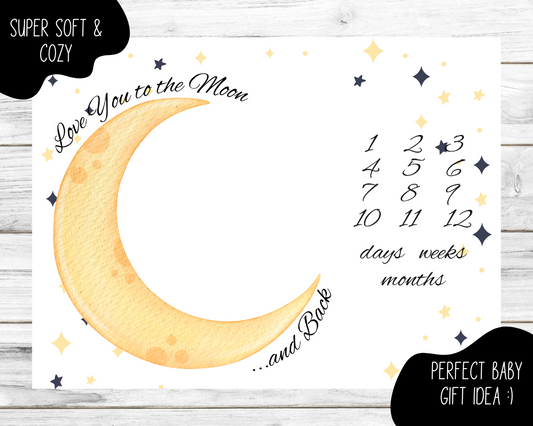 SUPER SOFT &
COZY
Love You to the Moon
1 2 3
4 5 6
7 8 9
10 11 12
days weeks
months
...and Back
PERFECT BABY
GIFT IDEA :)